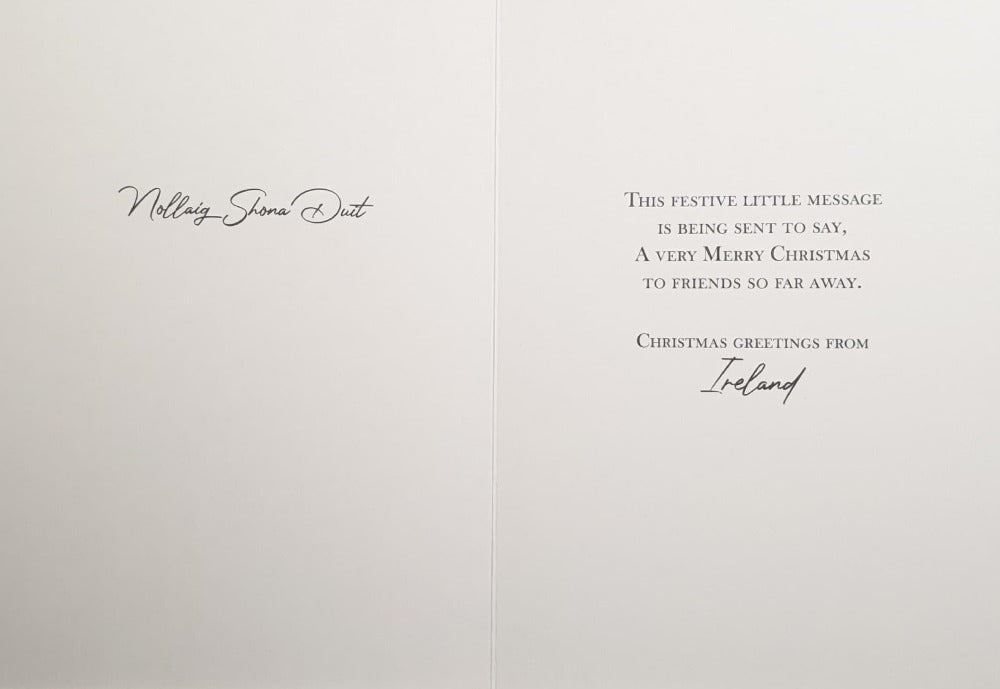 Nollaig Shona Duit
This festive little message
is being sent to say,
A very Merry Christmas
to friends so far away.
Christmas greetings from
Ireland